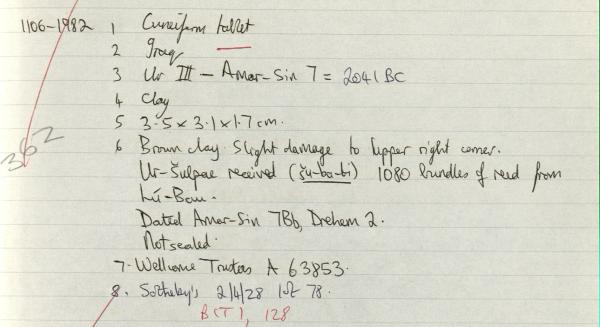 1106-1982 1 Cuneiform tablet
2 Iraq
3 Ur III - Amar-Sin 7 = 2041 BC
4 Clay
5 3·5 x 3·1 x 1·7 cm.
362
6 Brown clay. Slight damage to upper right corner.
Ur-Šulpae received (šu-ba-ti) 1080 bundles of reed from
Lú-Bau.
Dated Amar-Sin 7Bb, Drehem 2.
Not sealed.
7. Wellcome Trustees A 63853.
8. Sotheby's 2/4/28 lot 78.
B(T), 128